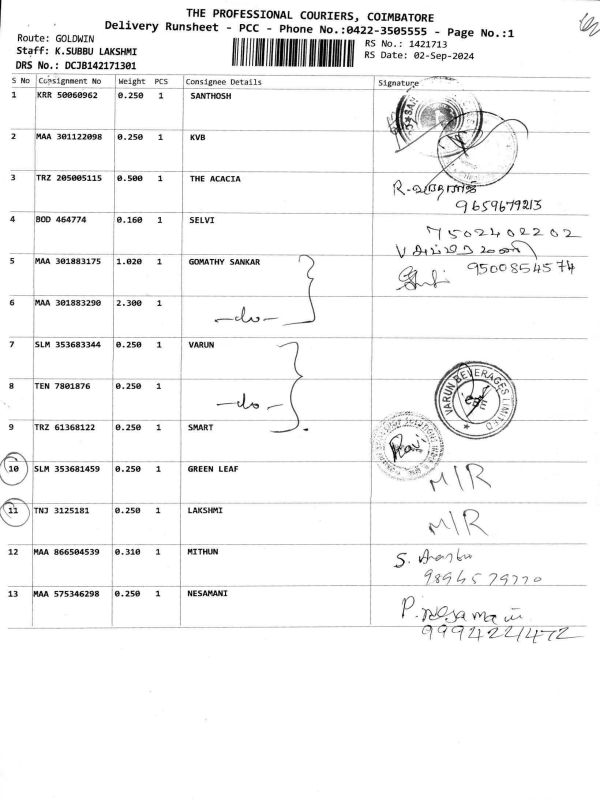 THE PROFESSIONAL COURIERS, COIMBATORE
Delivery Runsheet - PCC - Phone No.:0422-3505555 - Page No.:1
Route: GOLDWIN
RS No.: 1421713
Staff: K.SUBBU LAKSHMI
RS Date: 02-Sep-2024
DRS No.: DCJB142171301
S No Consignment No Weight PCS Consignee Details Signature
1 KRR 50060962 0.250 1 SANTHOSH
2 MAA 301122098 0.250 1 KVB
3 TRZ 205005115 0.500 1 THE ACACIA
9659679213
4 BOD 464774 0.160 1 SELVI 7502402202
5 MAA 301883175 1.020 1 GOMATHY SANKAR 9500854574
6 MAA 301883290 2.300 1 -do-
7 SLM 353683344 0.250 1 VARUN
VARUN BEVERAGES LIMITED
8 TEN 7801876 0.250 1 -do-
9 TRZ 61368122 0.250 1 SMART Ravi
10 SLM 353681459 0.250 1 GREEN LEAF N/R
11 TNJ 3125181 0.250 1 LAKSHMI N/R
12 MAA 866504539 0.310 1 MITHUN S.
9894579770
13 MAA 575346298 0.250 1 NESAMANI P.
9994221472